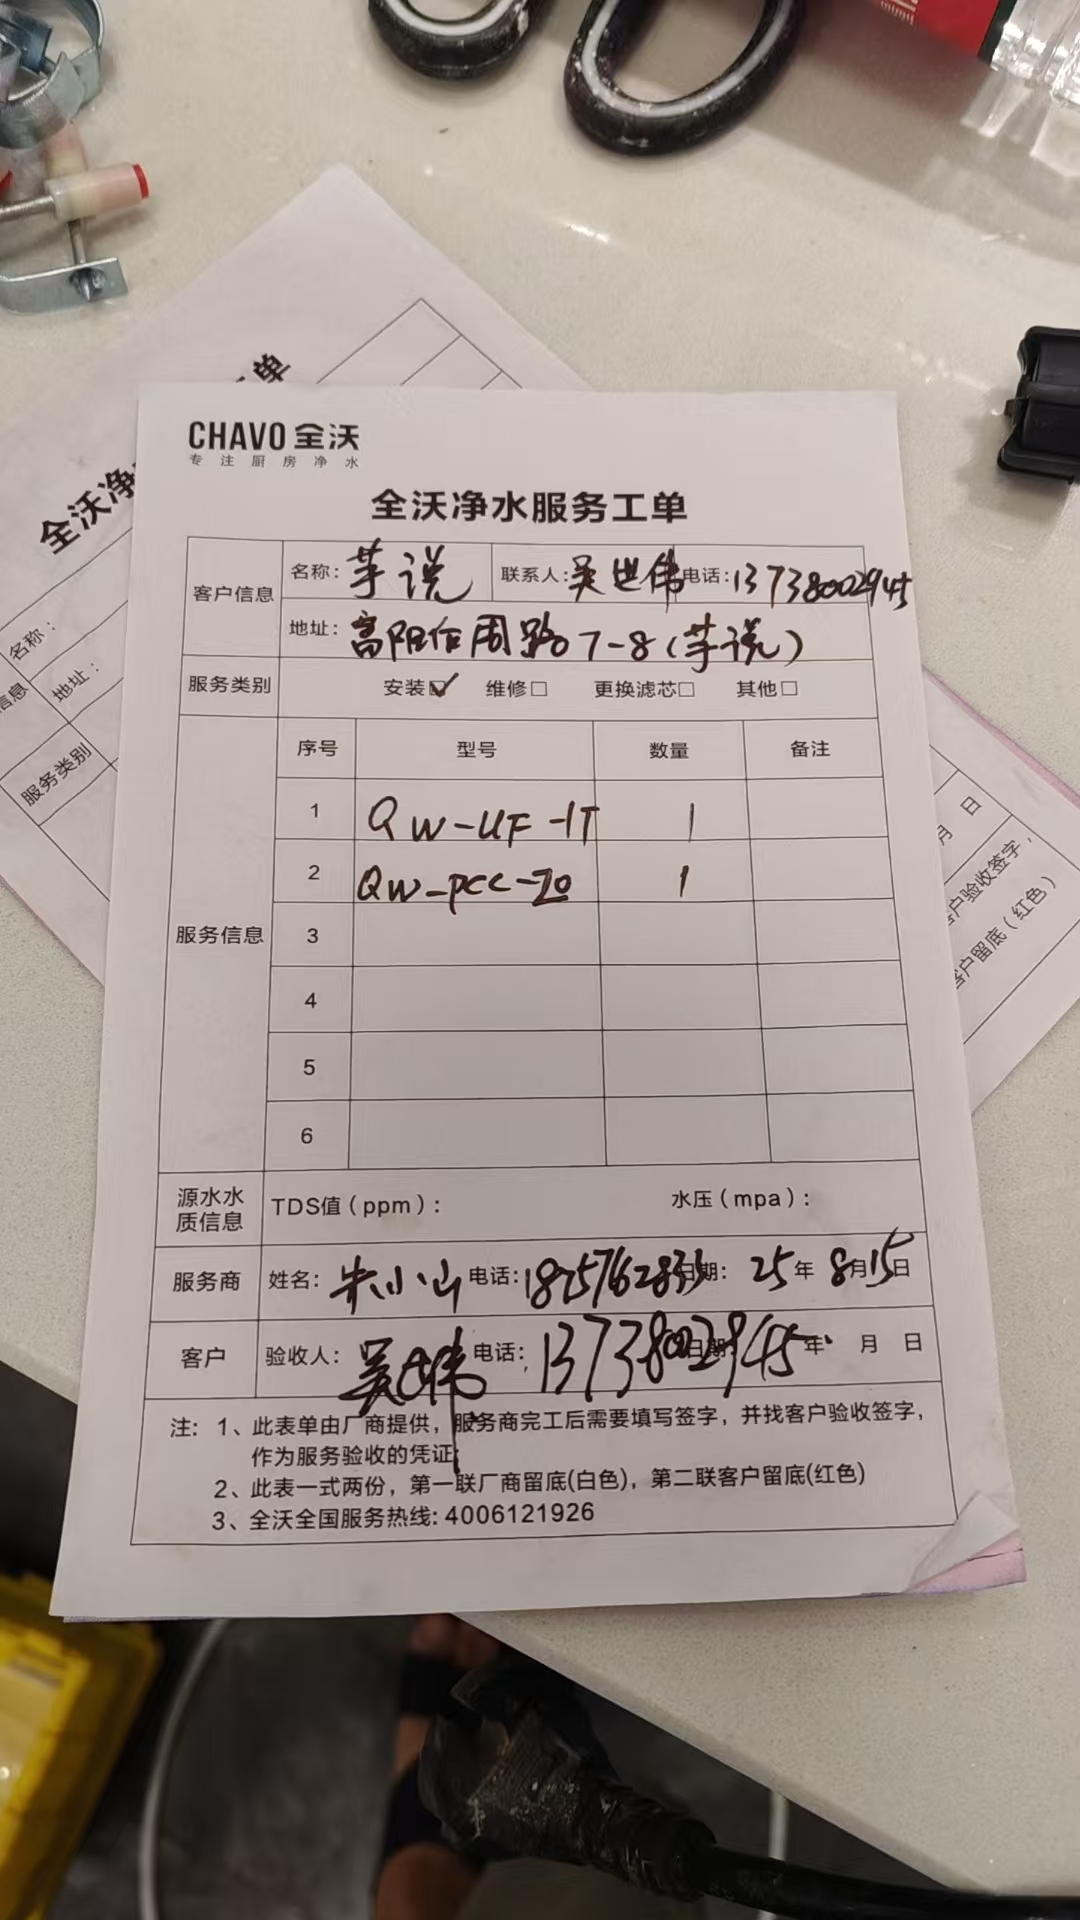 CHAVO 全沃
专注厨房净水
全沃净水服务工单
客户信息 名称：芋说 联系人：吴世伟 电话：13738002945
地址：富阳信周路07-8（芋说）
服务类别 安装☑ 维修□ 更换滤芯□ 其他□
服务信息 序号 型号 数量 备注
1 QW-UF-1T 1
2 QW-PCC-20 1
3
4
5
6
源水水质信息 TDS值（ppm）： 水压（mpa）：
服务商 姓名：朱小山 电话：1825762835 日期：25年8月15日
客户 验收人：吴世伟 电话：13738002945 日期 年 月 日
注：1、此表单由厂商提供，服务商完工后需要填写签字，并找客户验收签字，
作为服务验收的凭证；
2、此表一式两份，第一联厂商留底(白色)，第二联客户留底(红色)
3、全沃全国服务热线：4006121926
全沃净
工单
名称：
地址：
信息
服务类别
月 日
客户验收签字，
客户留底（红色）